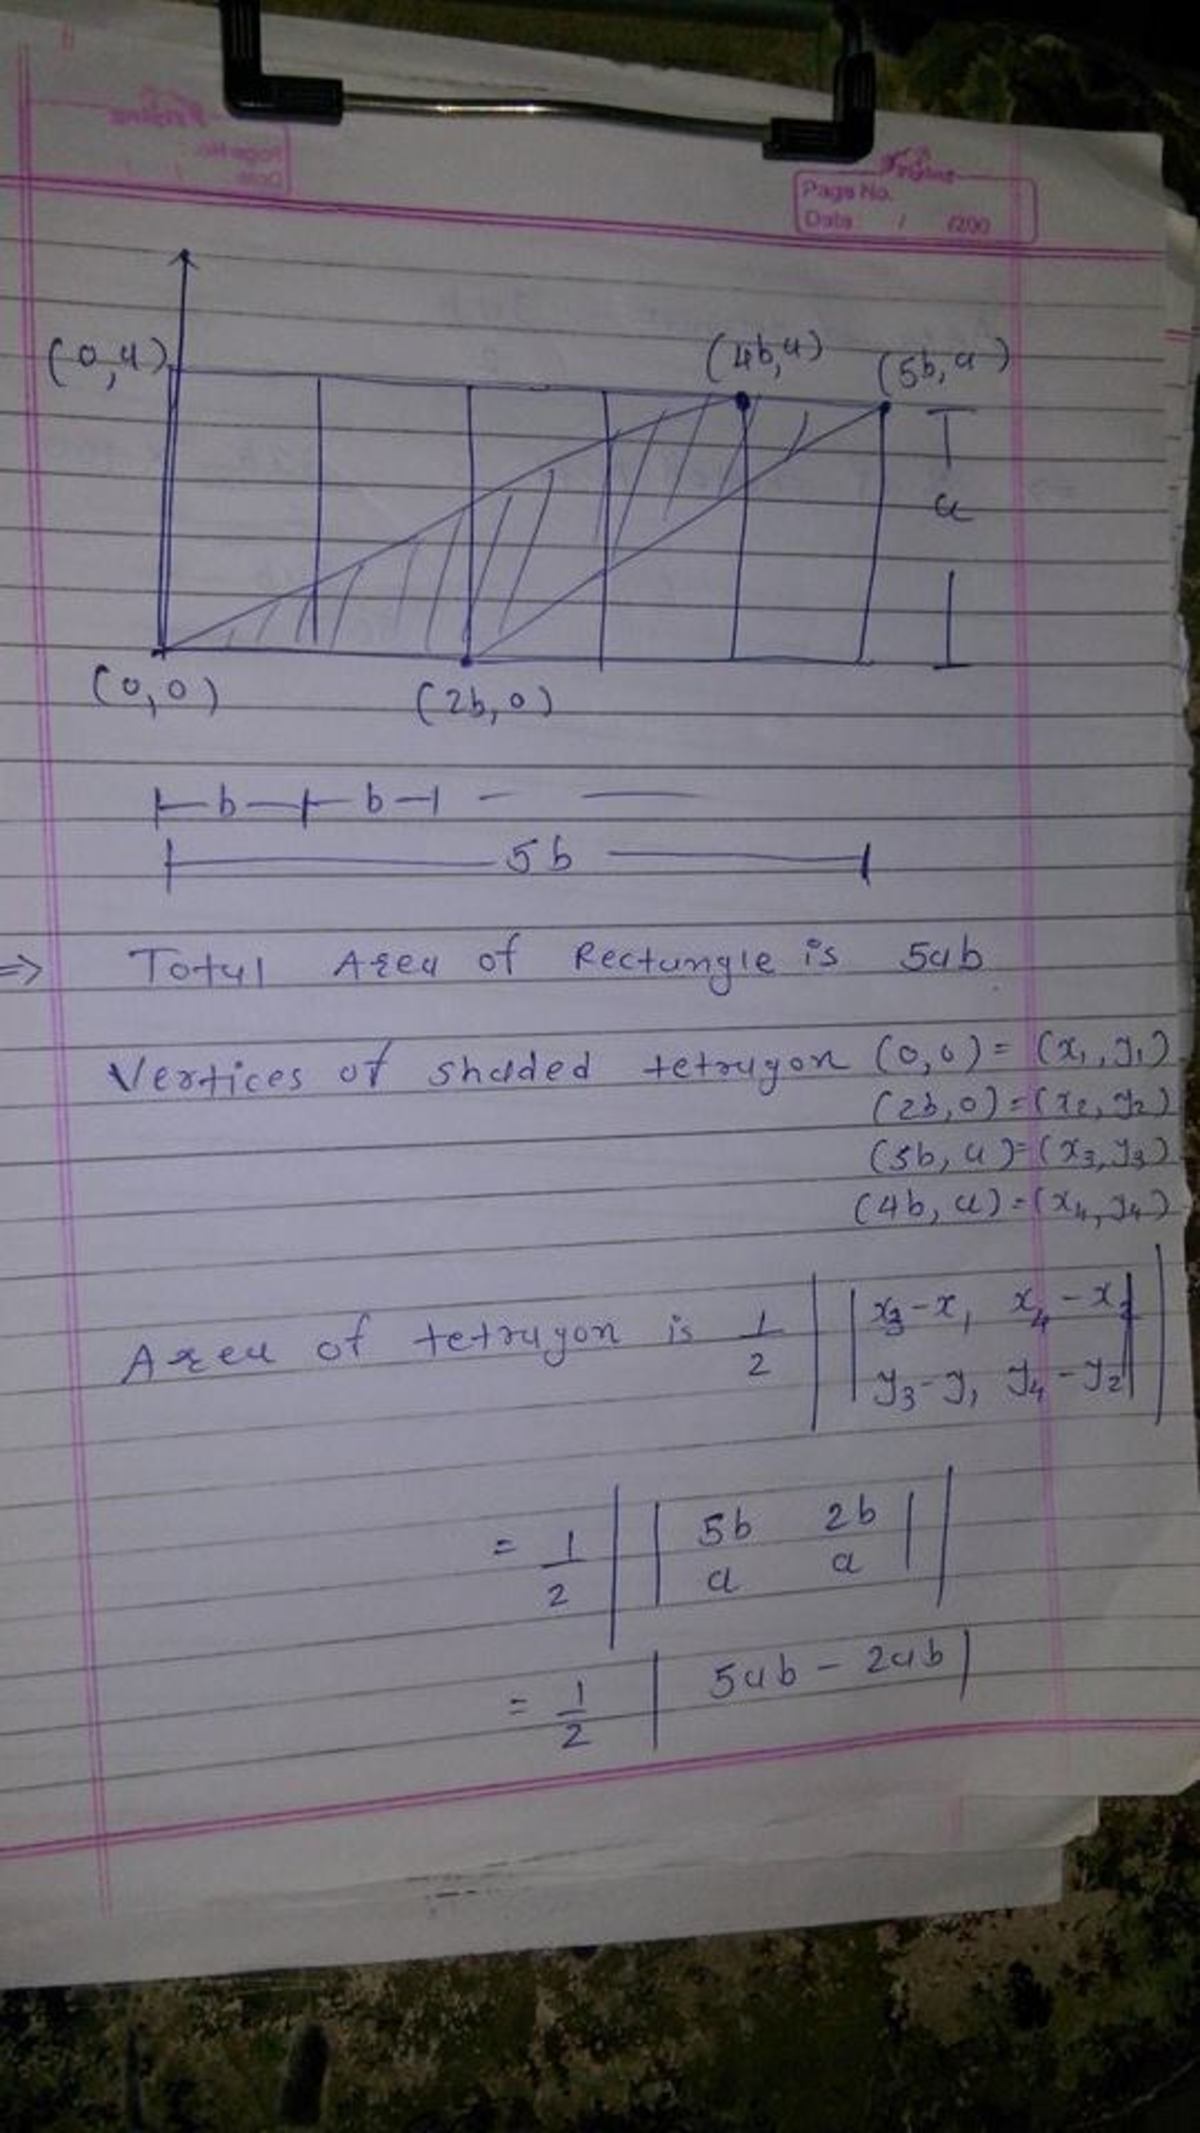 Page No.
Date / /200
(0,a) (4b,a) (5b,a)
a
(0,0) (2b,0)
b b
5b
=> Total Area of Rectangle is 5ab
Vertices of shaded tetragon (0,0) = (x₁, y₁)
(2b,0) = (x₂, y₂)
(5b, a) = (x₃, y₃)
(4b, a) = (x₄, y₄)
Area of tetragon is 1/2 | | x₃-x₁ x₄-x₂ | |
| | y₃-y₁ y₄-y₂ | |
= 1/2 | | 5b 2b | |
| | a a | |
= 1/2 | 5ab - 2ab |